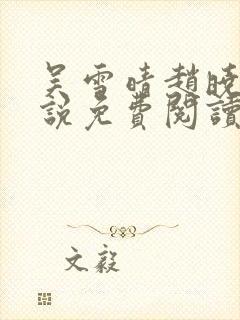 吴雪晴趙曉
說免費閱讀
文毅